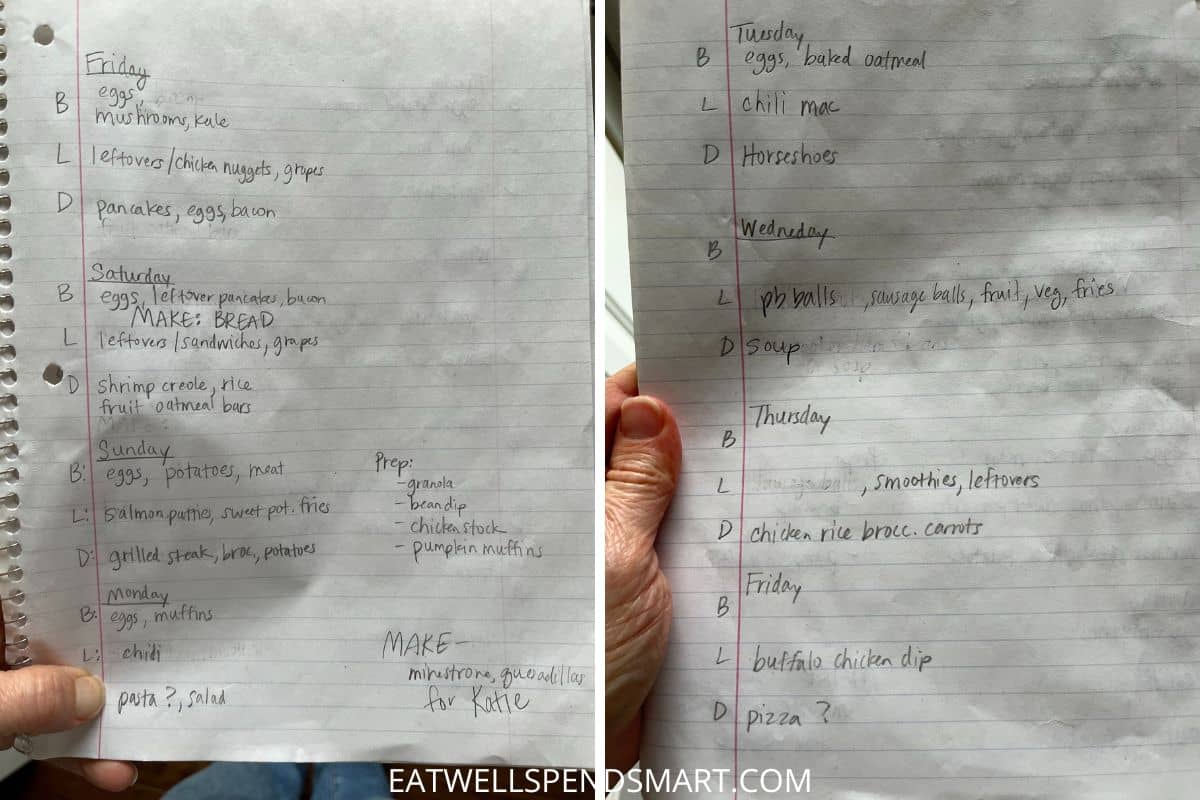 Friday
B eggs,
mushrooms, kale
L leftovers/chicken nuggets, grapes
D pancakes, eggs, bacon
Saturday
B eggs, leftover pancakes, bacon
MAKE: BREAD
L leftovers/sandwiches, grapes
D shrimp creole, rice
fruit oatmeal bars
Sunday
B: eggs, potatoes, meat
L: salmon patties, sweet pot. fries
D: grilled steak, broc, potatoes
Prep:
- granola
- bean dip
- chicken stock
- pumpkin muffins
Monday
B: eggs, muffins
L: chili
pasta?, salad
MAKE -
minestrone, quesadillas
for Katie
Tuesday
B eggs, baked oatmeal
L chili mac
D Horseshoes
Wedneday
B
L pb balls, sausage balls, fruit, veg, fries
D Soup
Thursday
B
L , smoothies, leftovers
D chicken rice brocc. carrots
Friday
B
L buffalo chicken dip
D pizza ?
EATWELLSPENDSMART.COM